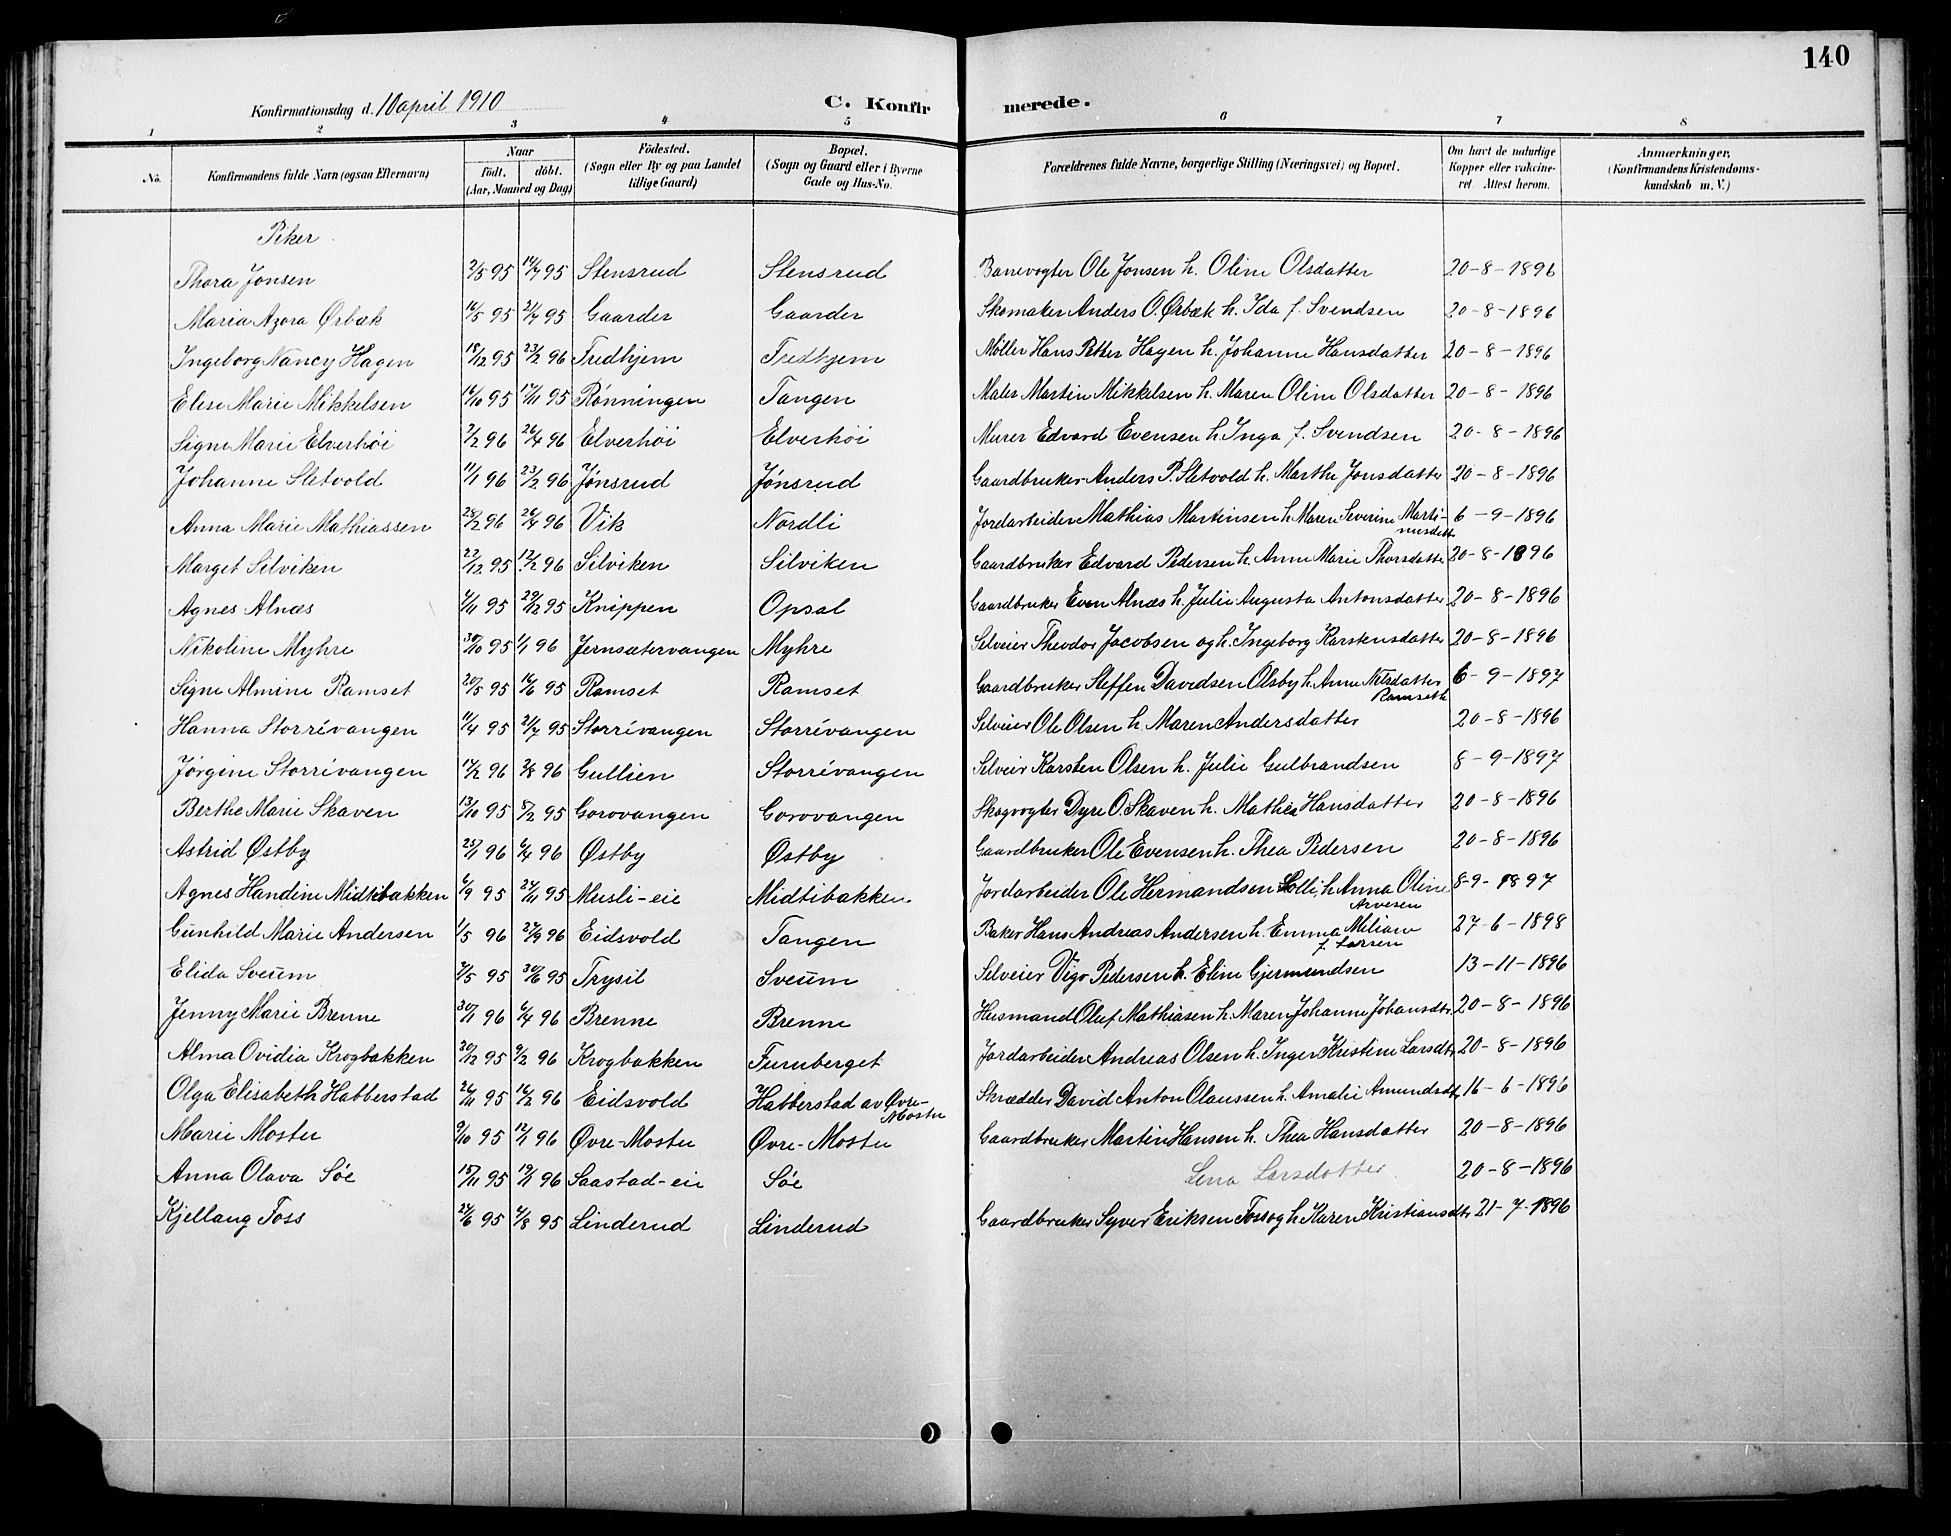 140
Konfirmationsdag d. 10 april 1910
C. Konfirmerede.
1 2 3 4 5 6 7 8
No. Konfirmandens fulde Navn (ogsaa Efternavn) Naar födt. döbt. (Aar, Maaned og Dag) Födested. (Sogn eller By og paa Landet tillige Gaard) Bopæl. (Sogn og Gaard eller i Byerne Gade og Hus-No. Forældrenes fulde Navne, borgerlige Stilling (Næringsvei) og Bopæl. Om havt de naturlige Kopper eller vakcineret. Attest herom. Anmærkninger, (Konfirmandens Kristendomskundskab m. V.)
Piker
Thora Jonsen 2/5 95 14/7 95 Stensrud Stensrud Banevogter Ole Jonsen h. Oline Olsdatter 20-8-1896
Maria Azora Ørbæk 16/5 95 21/7 95 Gaarder Gaarder Skomaker Anders O. Ørbæk h. Ida f. Svendsen 20-8-1896
Ingeborg Nancy Hagen 18/12 95 23/2 96 Fredhjem Fredhjem Møller Hans Petter Hagen h. Johanne Hansdatter 20-8-1896
Elise Marie Mikkelsen 16/10 95 17/11 95 Rønningen Tangen Maler Martin Mikkelsen h. Maren Oline Olsdatter 20-8-1896
Signe Marie Elverhöi 2/2 96 26/4 96 Elverhöi Elverhöi Murer Edvard Evensen h. Inga f. Svendsen 20-8-1896
Johanne Sletvold 11/1 96 23/2 96 Jónsrud Jónsrud Gaardbruker Anders P. Sletvold h. Marthe Jonsdatter 20-8-1896
Anna Marie Mathiassen 25/2 96 26/4 96 Vik Nordli Jordarbeider Mathias Martinsen h. Maren Severine Martinusdatt 6-9-1896
Marget Silviken 22/12 95 12/2 96 Silviken Silviken Gaardbruker Edvard Pedersen h. Anne Marie Thorsdatter 20-8-1896
Agnes Alnæs 4/11 95 29/12 95 Knippen Opsal Gaardbruker Even Alnæs h. Julie Augusta Antonsdatter 20-8-1896
Nikoline Myhre 30/10 95 1/1 96 Jernsætervangen Myhre Selveier Theodor Jacobsen og h. Ingeborg Karstensdatter 20-8-1896
Signe Almine Ramset 20/5 95 16/6 95 Ramset Ramset Gaardbruker Steffen Davidsen Olsby h. Anne Nilsdatter Ramseth 6-9-1897
Hanna Storrívangen 11/4 95 21/7 95 Storrívangen Storrívangen Selveier Ole Olsen h. Maren Andersdatter 20-8-1896
Jørgine Storrívangen 17/2 96 2/8 96 Gullien Storrívangen Selveier Karsten Olsen h. Julie Gulbrandsen 8-9-1897
Berthe Marie Skaven 13/10 95 8/12 95 Gorovangen Gorovangen Skogvogter Dyre O. Skaven h. Mathea Hansdatter 20-8-1896
Astrid Østby 25/1 96 6/4 96 Østby Østby Gaardbruker Ole Evensen h. Thea Pedersen 20-8-1896
Agnes Handine Midtibakken 6/9 95 24/11 95 Musli-eie Midtibakken. Jordarbeider Ole Hermandsen Holli, h. Anna Oline Arvesen 8-9-1897
Gunhild Marie Andersen 1/5 96 27/9 96 Eidsvold Tangen Baker Hans Andreas Andersen h. Emma Miliane f. Larsen 27-6-1898
Elida Sveum 7/5 95 30/6 95 Trysil Sveum Selveier Vigo Pedersen h. Eline Gjermundsen 13-11-1896
Jenny Marie Brenne 30/1 96 6/4 96 Brenne Brenne Husmand Oluf Mathiasen h. Maren Johanne Johansdtr 20-8-1896
Alma Ovidia Krogbakken 20/12 95 9/2 96 Krogbakken Furuberget Jordarbeider Andreas Olsen h. Inger Kristine Larsdtr 20-8-1896
Olga Elisabeth Habberstad 26/11 95 16/2 96 Eidsvold Habberstad av Øvre-Moster Skrædder David Anton Olaussen h. Amalie Amundsdtr 16-6-1896
Marie Moster 9/10 95 12/1 96 Øvre-Moster Øvre-Moster Gaardbruker Martin Hansen h. Thea Hansdatter 20-8-1896
Anna Olava Söe 15/11 95 19/1 96 Saastad-eie Söe Lena Larsdatter 20-8-1896
Kjellaug Foss 24/6 95 4/8 95 Linderud Linderud Gaardbruker Syver Eriksen Foss og h Karen Kristiansdtr 21-7-1896